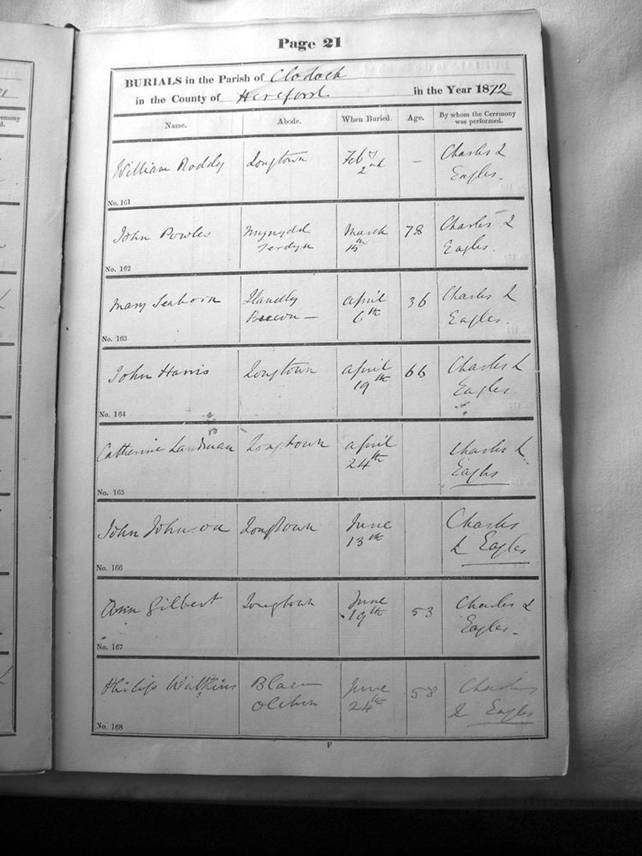 Page 21
BURIALS in the Parish of Clodock
in the County of Hereford. in the Year 1872
Name. Abode. When Buried. Age. By whom the Ceremony was performed.
William Roddy Longtown Feby 2nd – Charles L Eagles.
No. 161
John Powles Mynydd March 78 Charles L Eagles.
No. 162
Mary Seaborn Llanelly Brecon – April 6th 36 Charles L Eagles.
No. 163
John Harris Longtown April 19th 66 Charles L Eagles
No. 164
Catherine Landman Longtown April 24th Charles L Eagles
No. 165
John Johnson Longtown June 13th Charles L Eagles
No. 166
Ann Gilbert Longtown June 19th 53 Charles L Eagles.
No. 167
Philip Watkins Blaen Olchon June 24th 58 Charles L Eagles
No. 168
F